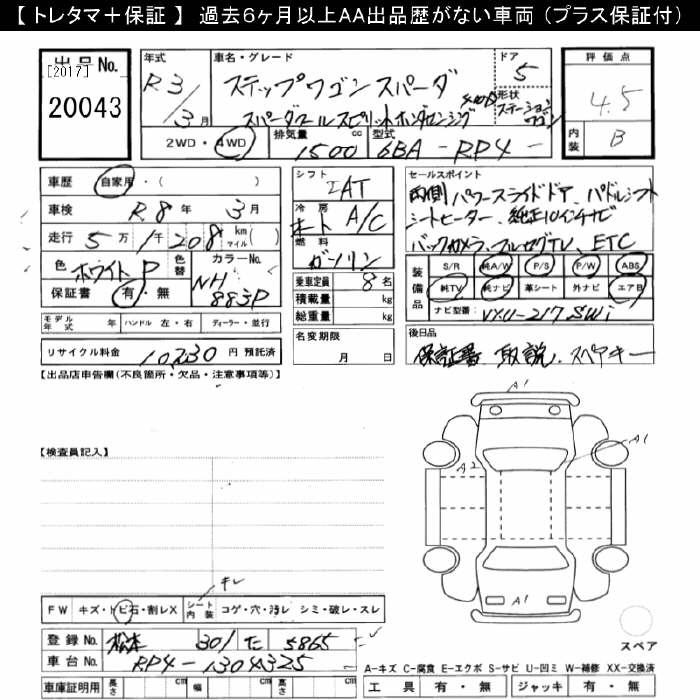 【 トレタマ＋保証 】 過去6ヶ月以上AA出品歴がない車両（プラス保証付）
出品No.
[2017]
20043
年式
R3/3月
車名・グレード
ステップワゴン スパーダ
スパーダクールスピリットホンダセンシング
ドア
5
形状
ステーションワゴン
評価点
4.5
内装
B
2WD・4WD
排気量
1500
cc
型式
6BA - RP4 -
車歴
自家用・（ ）
車検
R8年 3月
走行
5万1千208
km
マイル
( )
色
ホワイトP
色替
カラーNo.
NH883P
保証書
有・無
シフト
IAT
冷房
オート A/C
燃料
ガソリン
乗車定員
8名
積載量
kg
総重量
kg
名変期限
月 日
セールスポイント
両側パワースライドドア、パドルシフト
シートヒーター、純正10インチナビ
バックカメラ、フルセグTV、ETC
装備品
S/R
純A/W
P/S
P/W
ABS
純TV
純ナビ
革シート
外ナビ
エアB
ナビ型番：VXU-217SWi
モデル年式
年
ハンドル 左・右
ディーラー・並行
リサイクル料金
10230円 預託済
後日品
保証書 取説 スペアキー
【出品店申告欄(不良箇所・欠品・注意事項等)】
【検査員記入】
A1
A1
A2
A1
キレ
FW
キズ・トビ石・割レX
シート内装
コゲ・穴・汚レ シミ・破レ・スレ
登録No.
松本 301 た 5865
車台No.
RP4-1304325
車庫証明用
長さ
cm
幅
cm
高さ
cm
スペア
A-キズ C-腐食 E-エクボ S-サビ U-凹ミ W-補修 XX-交換済
工具
有・無
ジャッキ
有・無